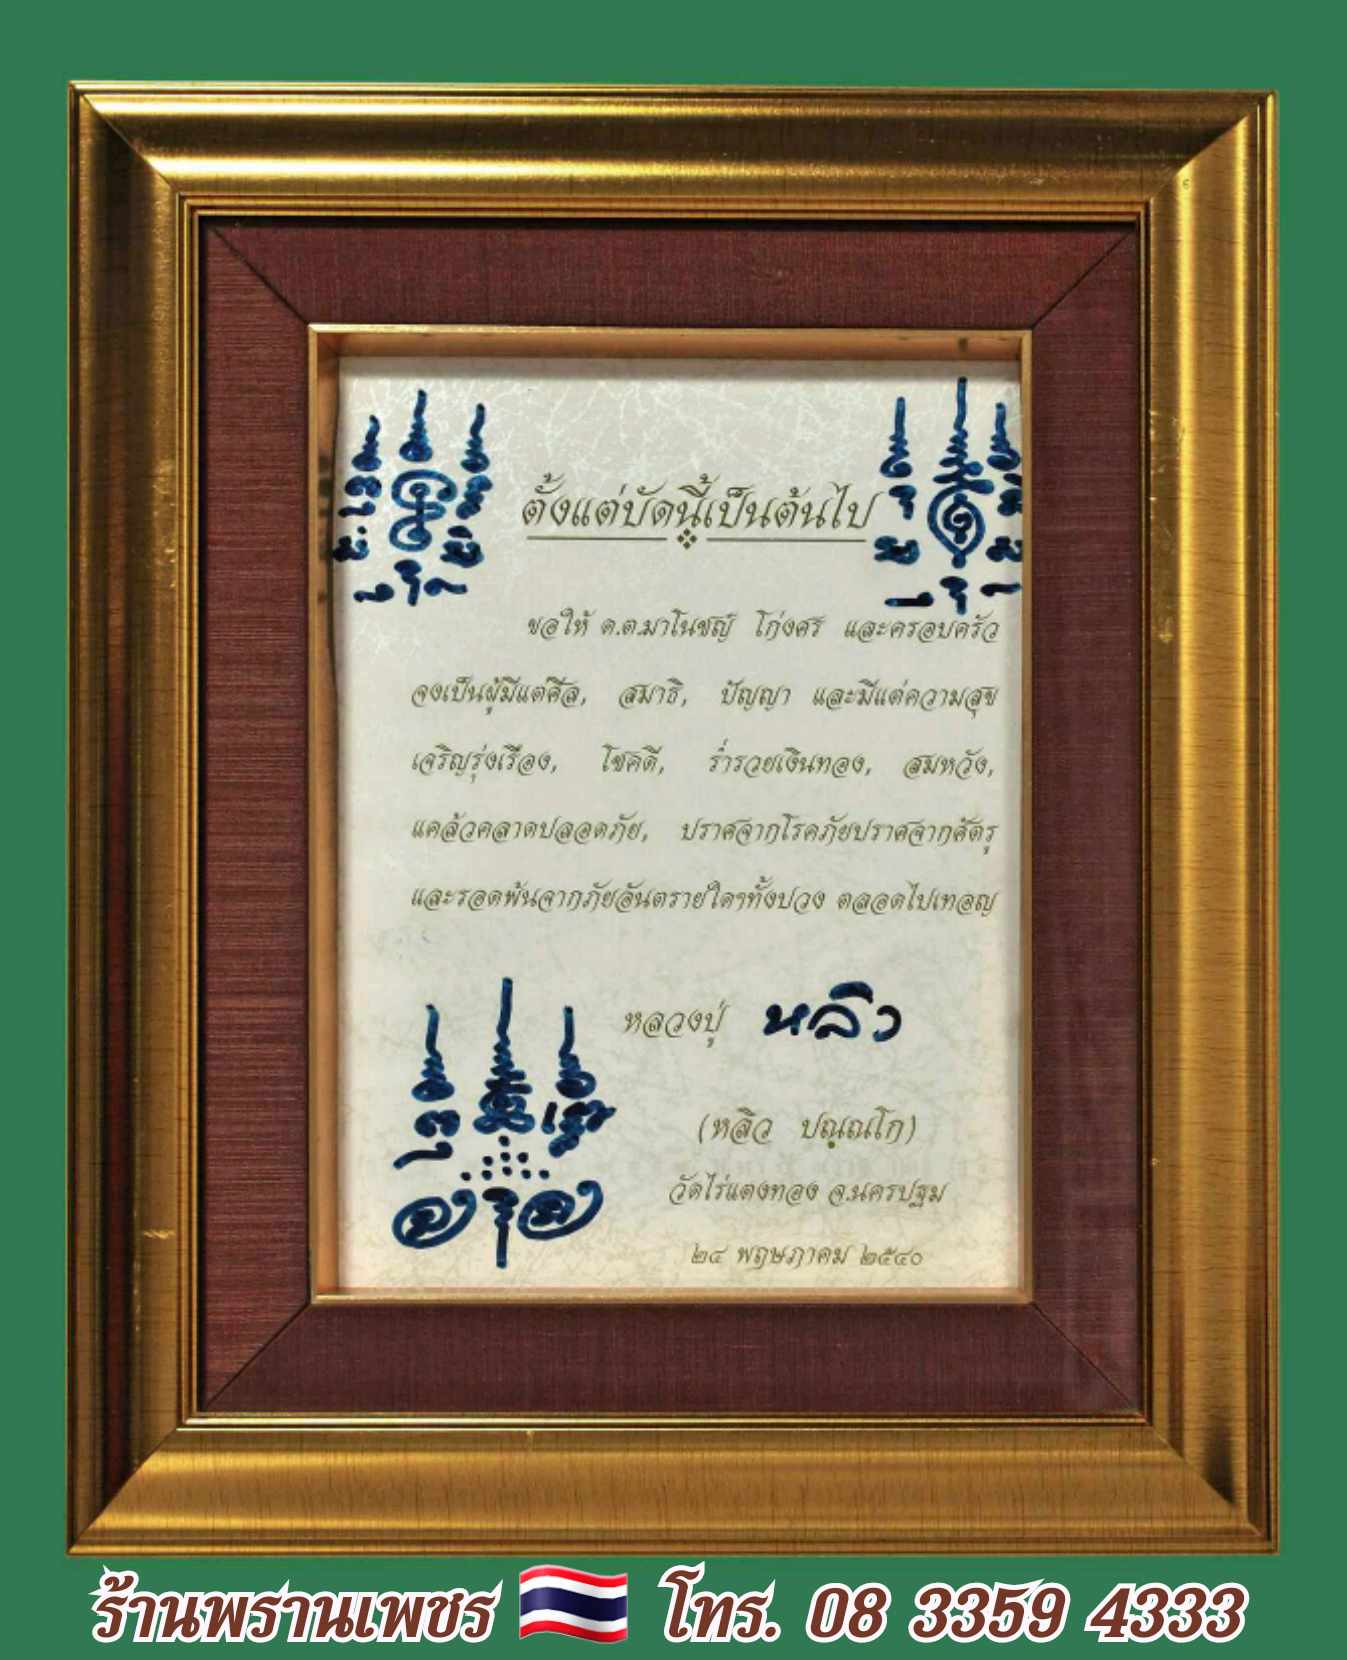 ตั้งแต่บัดนี้เป็นต้นไป
ขอให้ ด.ต.มาโนชญ์ โก่งศร และครอบครัว
จงเป็นผู้มีแต่ศีล, สมาธิ, ปัญญา และมีแต่ความสุข
เจริญรุ่งเรือง, โชคดี, ร่ำรวยเงินทอง, สมหวัง,
แคล้วคลาดปลอดภัย, ปราศจากโรคภัยปราศจากศัตรู
และรอดพ้นจากภัยอันตรายใดๆทั้งปวง ตลอดไปเทอญ
หลวงปู่ หลิว
(หลิว ปณฺณโก)
วัดไร่แตงทอง จ.นครปฐม
๒๔ พฤษภาคม ๒๕๔๐
ร้านพรานเพชร 🇹🇭 โทร. 08 3359 4333